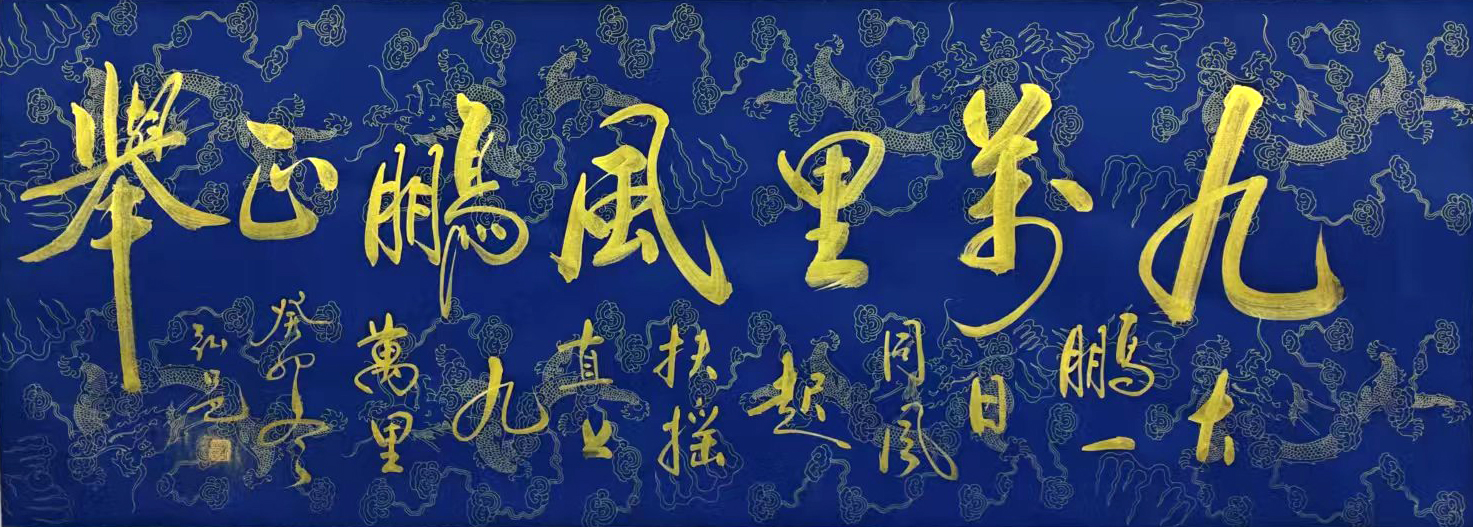 九萬里風鵬正舉
大
鵬一
日
同風
起
扶搖
直上
九
萬里
癸卯冬
弘